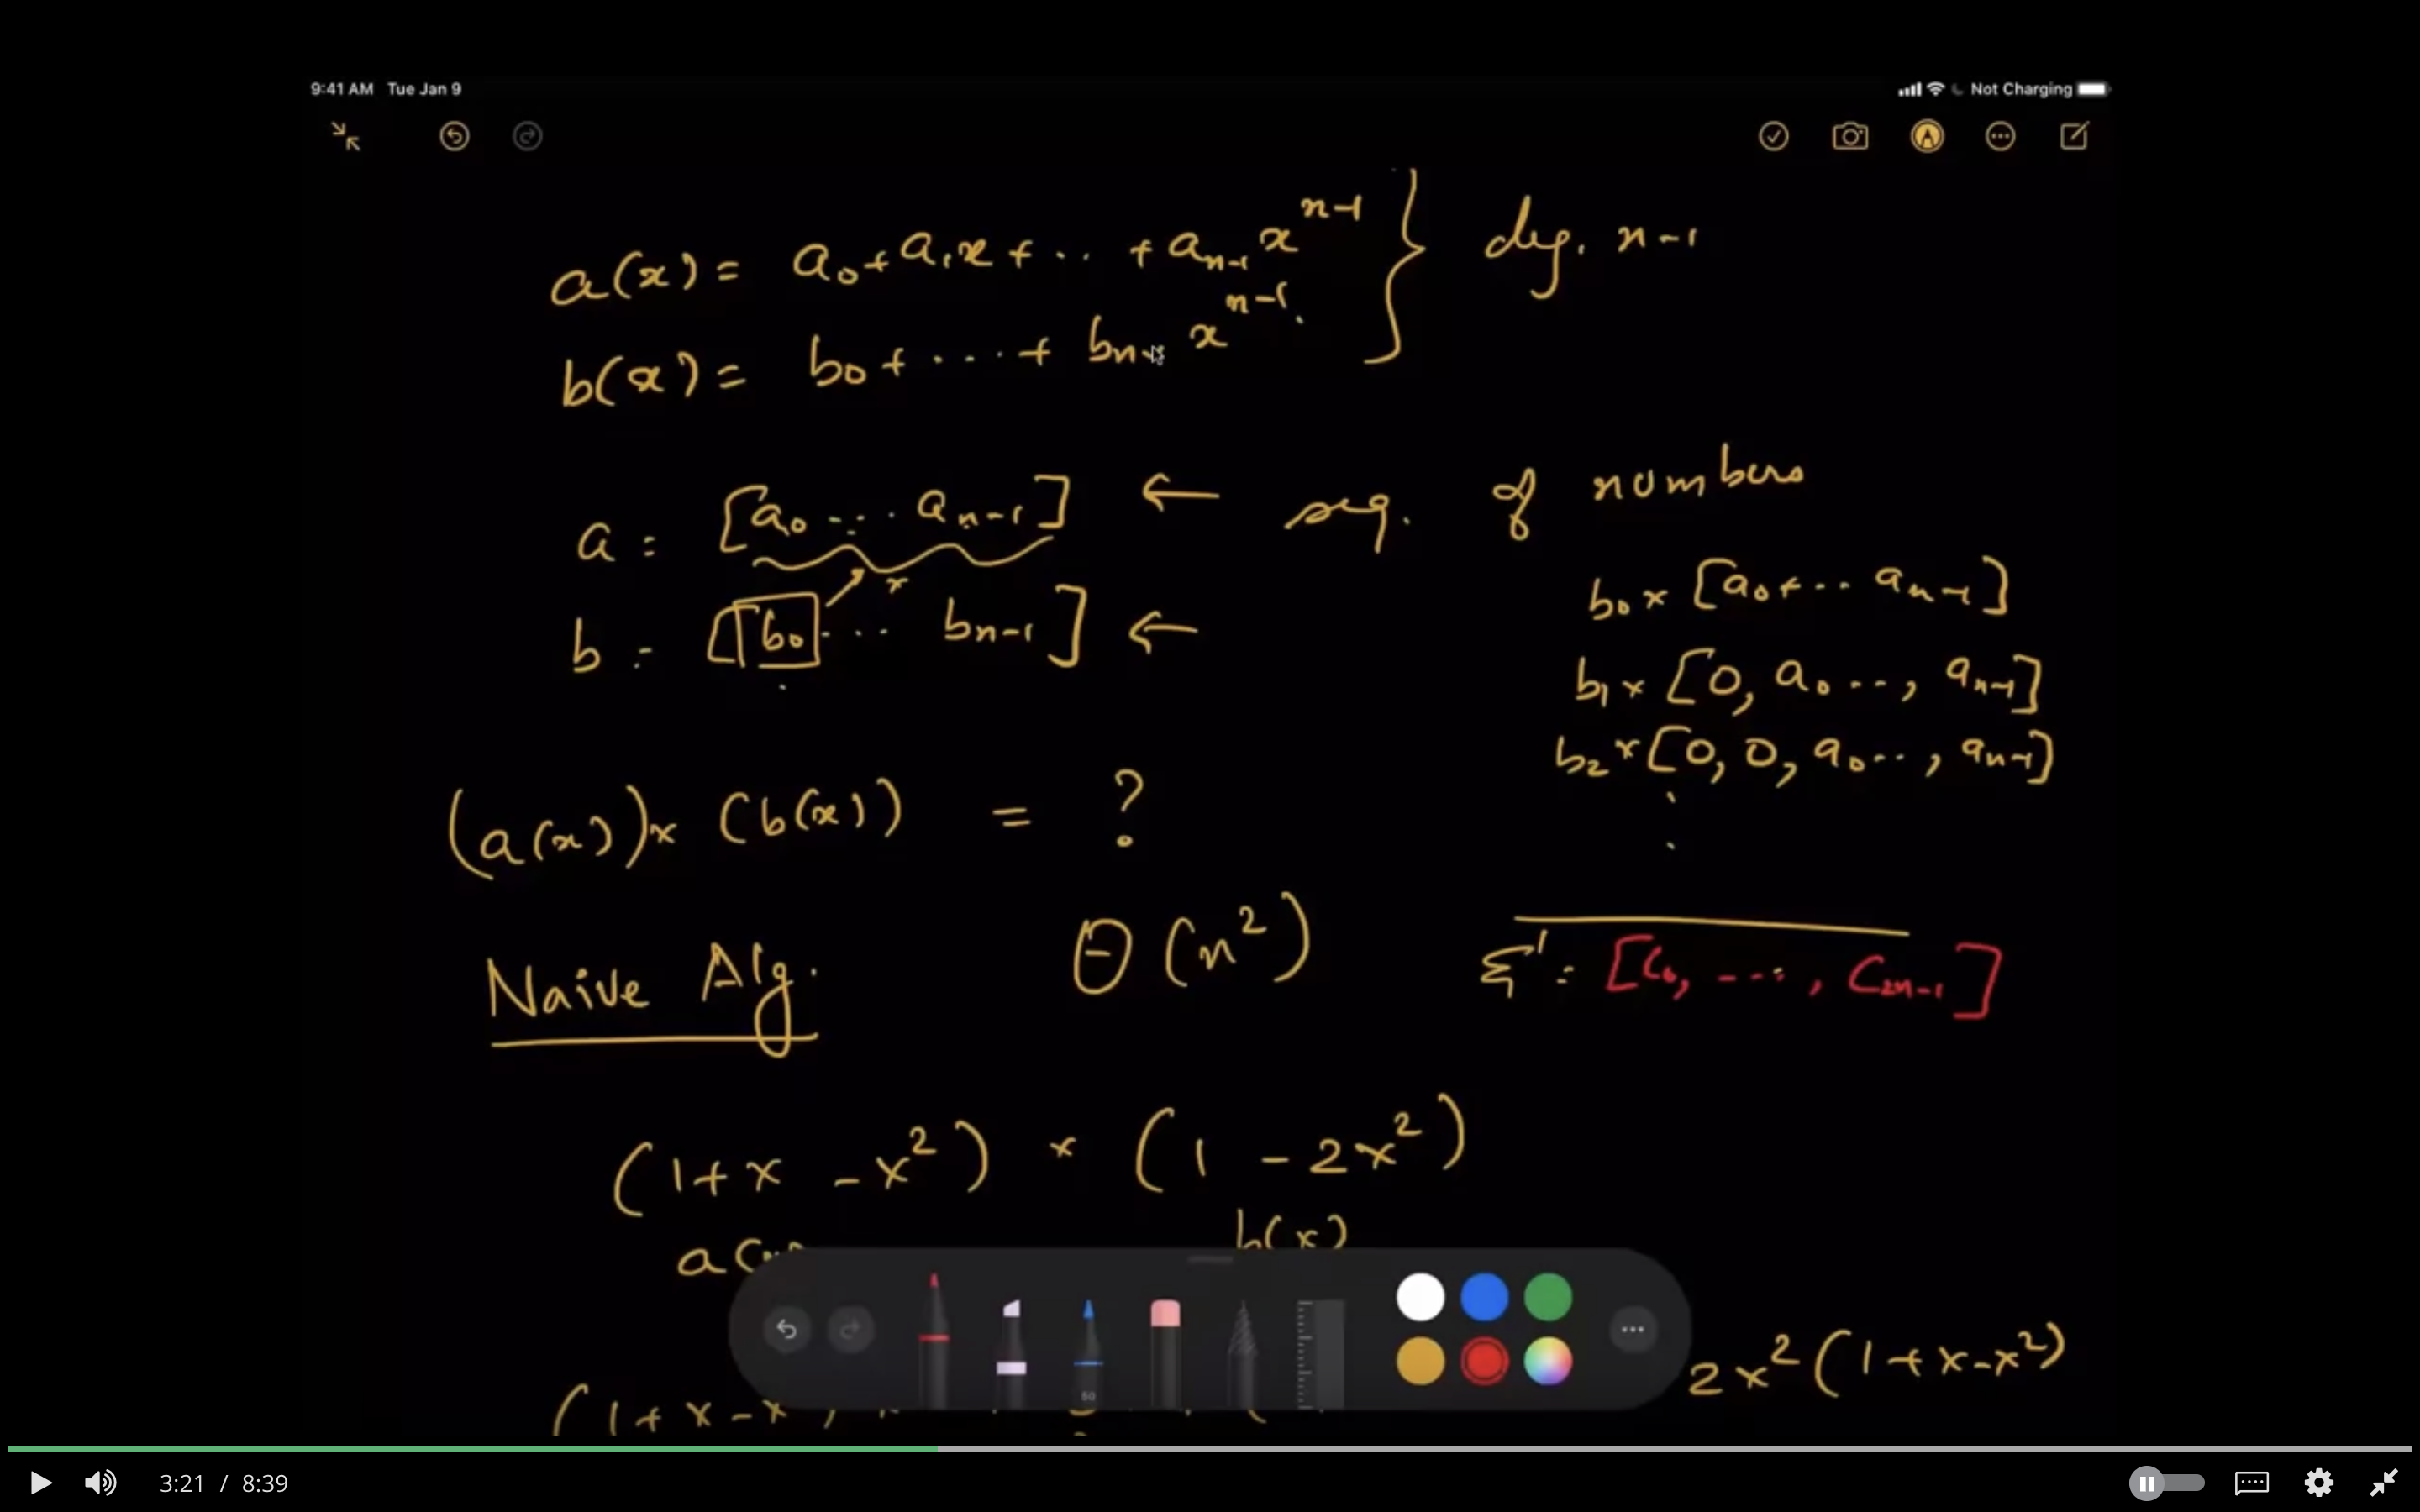 9:41 AM Tue Jan 9
Not Charging
a(x) = a₀ + a₁x + .. + aₙ₋₁ xⁿ⁻¹ } deg. n-1
b(x) = b₀ + ... + bₙ₋₁ xⁿ⁻¹
a = [a₀ ... aₙ₋₁] ← seq. of numbers
b = [b₀ ... bₙ₋₁] ←
x
b₀ x [a₀ + .. aₙ₋₁]
b₁ x [0, a₀ .., aₙ₋₁]
b₂ x [0, 0, a₀ .., aₙ₋₁]
(a(x)) x (b(x)) = ?
Naive Alg. Θ(n²)
Σ = [C₀, ..., C₂ₙ₋₁]
(1 + x - x²) x (1 - 2x²)
b(x)
50
2x²(1 + x - x²)
(1 + x - x
3:21 / 8:39